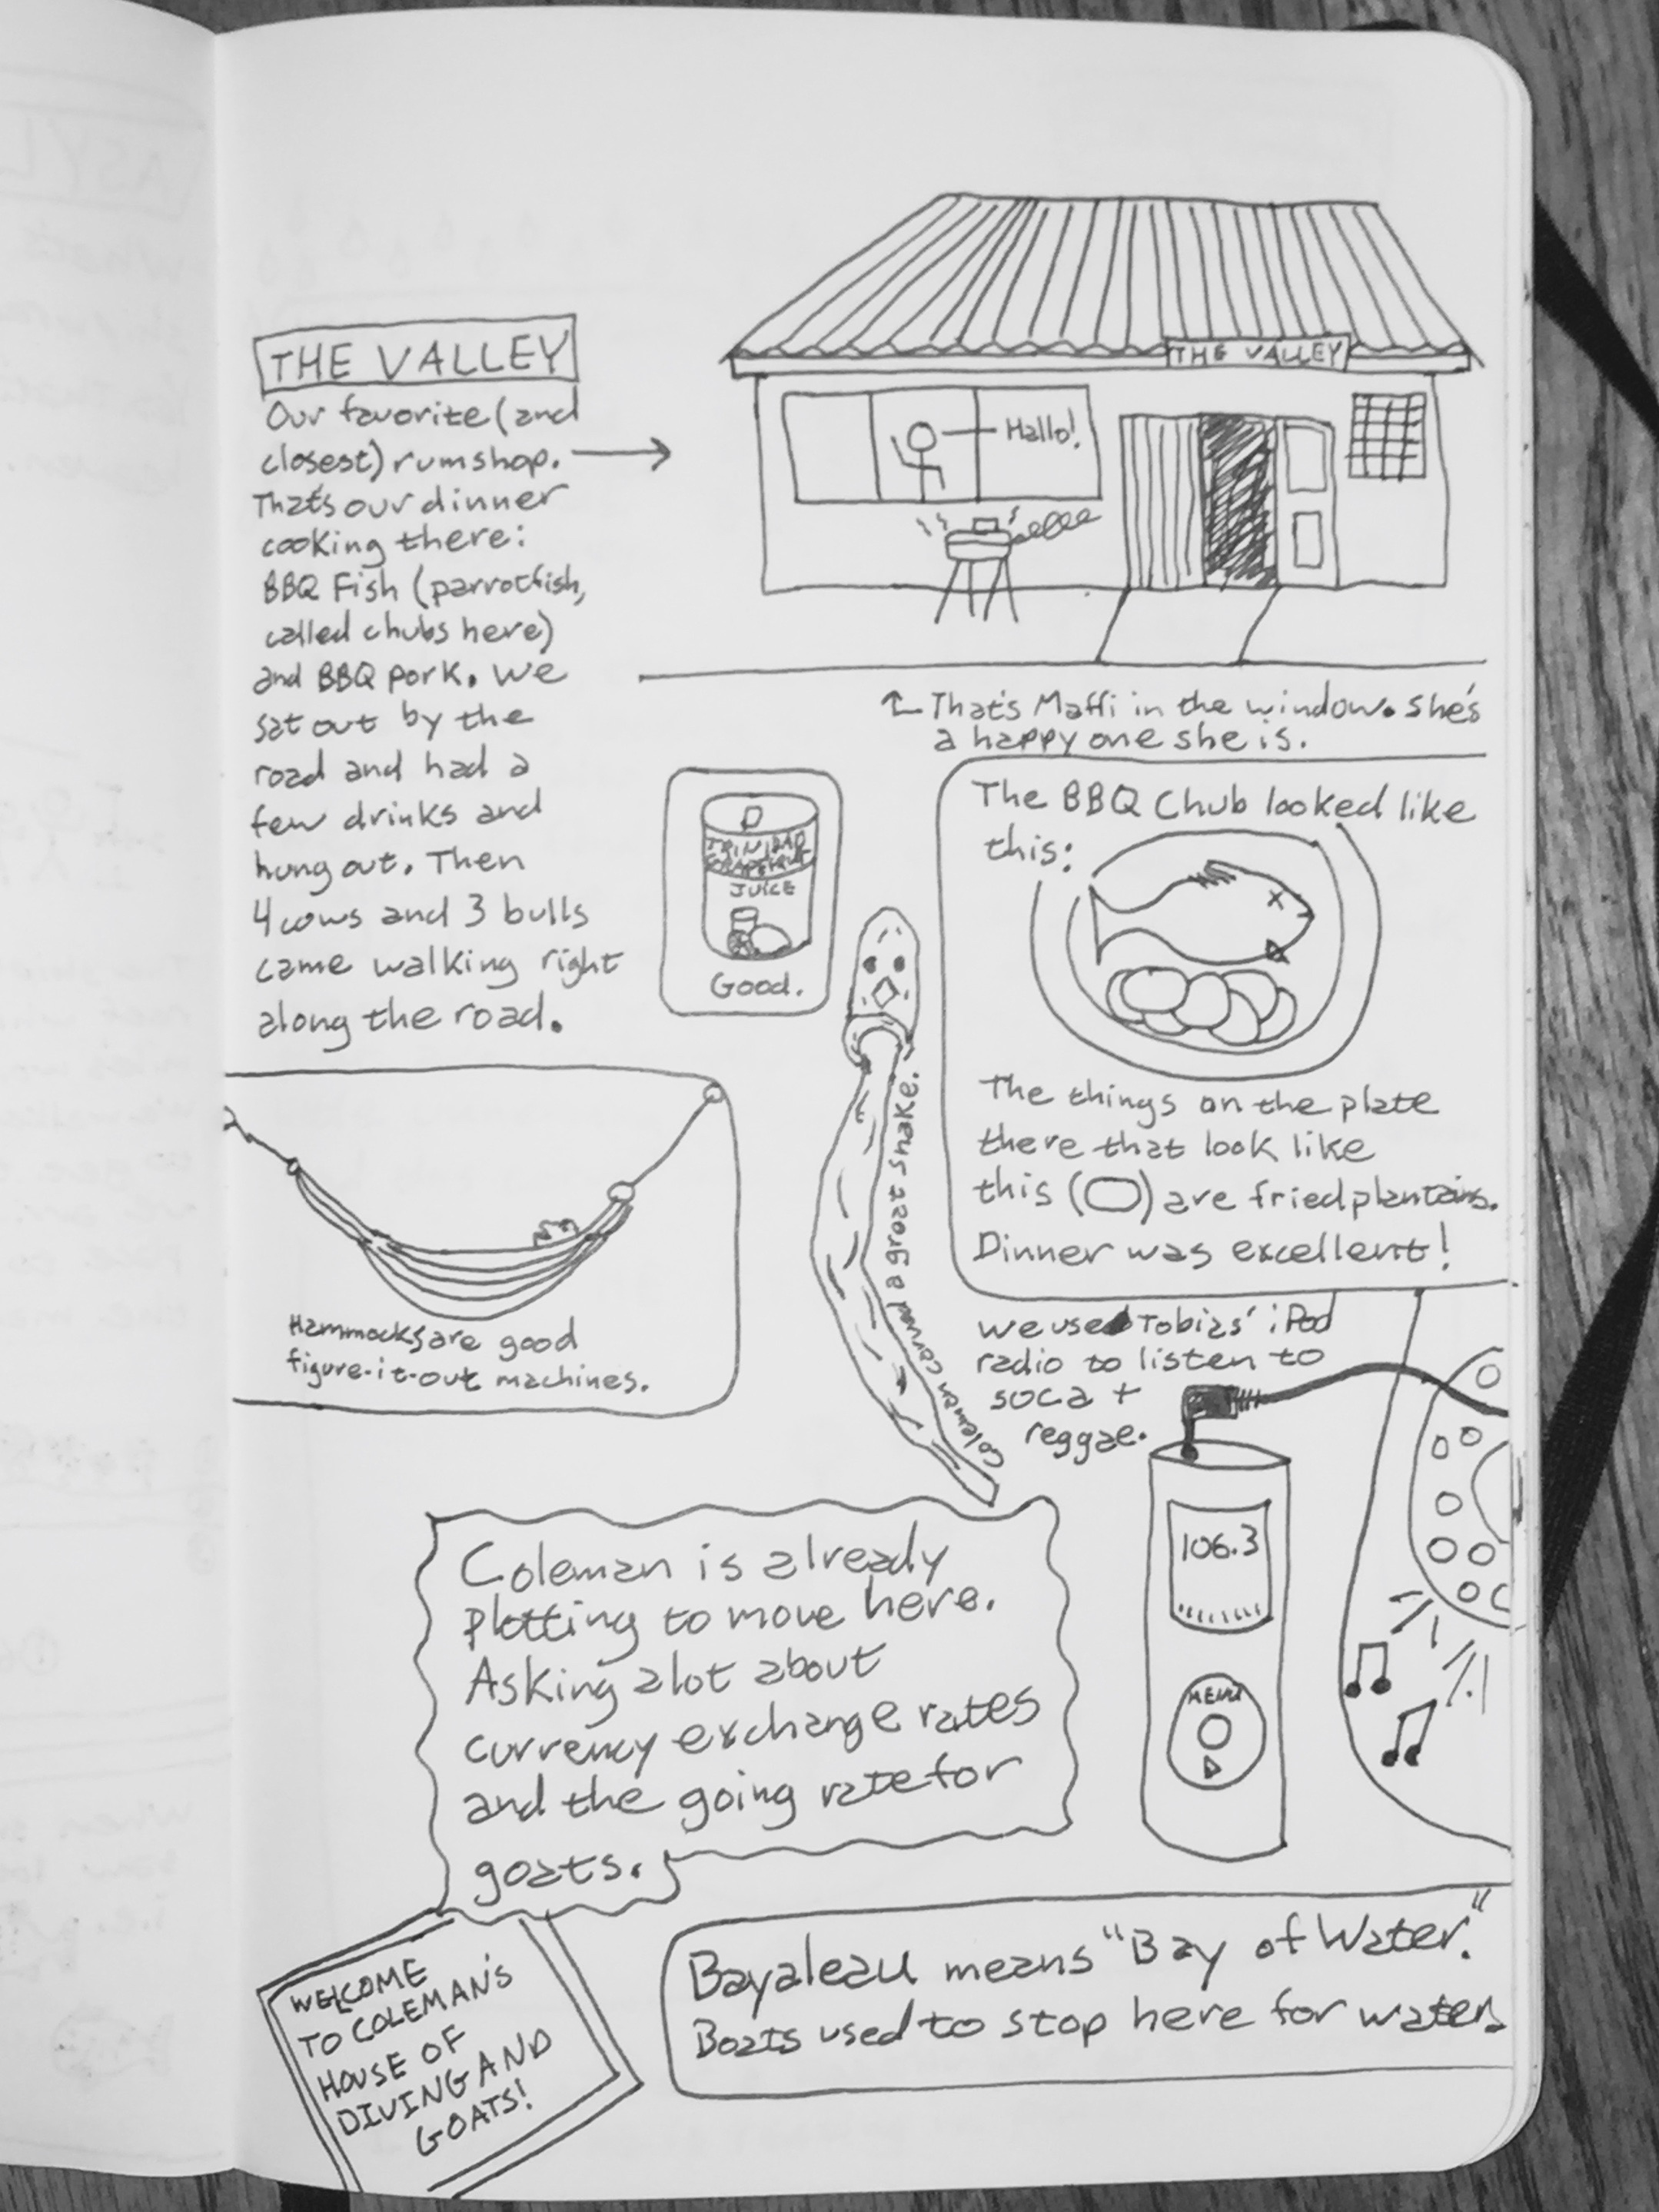 THE VALLEY
Our favorite (and
closest) rumshop.
That's our dinner
cooking there:
BBQ Fish (parrotfish,
called chubs here)
and BBQ pork. We
sat out by the
road and had a
few drinks and
hung out. Then
4 cows and 3 bulls
came walking right
along the road.
THE VALLEY
Hallo!
That's Maffi in the window. She's
a happy one she is.
TRINIDAD
GRAPEFRUIT
JUICE
Good.
The BBQ Chub looked like
this:
The things on the plate
there that look like
this ( ) are fried plantains.
Dinner was excellent!
Coleman carved a groat snake.
Hammocks are good
figure-it-out machines.
We used Tobias' iPod
radio to listen to
soca +
reggae.
106.3
MENU
Coleman is already
plotting to move here.
Asking alot about
currency exchange rates
and the going rate for
goats.
WELCOME
TO COLEMAN'S
HOUSE OF
DIVING AND
GOATS!
Bayaleau means "Bay of Water."
Boats used to stop here for water.